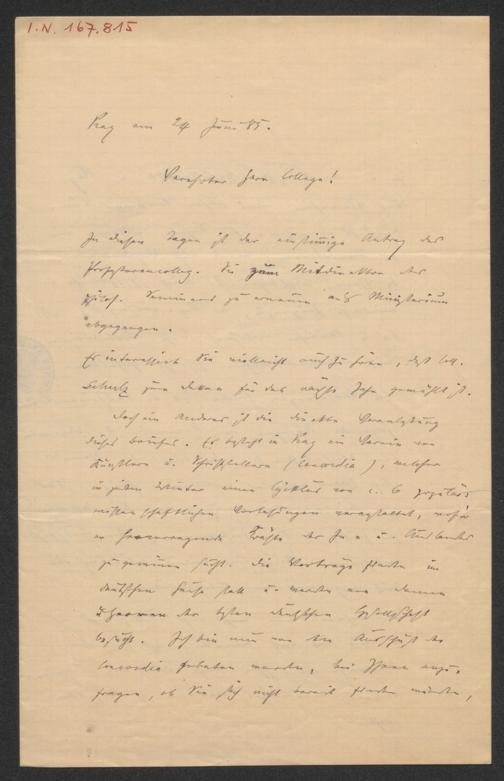 I.N. 167.815
Prag am 24 Juni 85.
Verehrter Herr College!
In diesen Tagen ist der einstimmige Antrag des
Professorencolleg. Sie zum Mitdirektor des
philos. Seminars zu ernennen ans Ministerium
abgegangen.
Es interessirt Sie vielleicht auch zu hören, daß Coll.
Schulz zum Dekan für das nächste Jahr gewählt ist.
Doch ein Anderes ist die direkte Veranlassung
dieses Briefes. Es besteht in Prag ein Verein von
Künstlern u. Schriftstellern (Concordia), welcher
in jedem Winter einen Cyklus von c. 6 populär
wissenschaftlichen Vorlesungen veranstaltet, wofür
er hervorragende Kräfte des In- u. Auslandes
zu gewinnen sucht. Die Vorträge finden im
deutschen Hause statt u. werden von Damen
u. Herren der besten deutschen Gesellschaft
besucht. Ich bin nun von dem Ausschuß der
Concordia gebeten worden, bei Ihnen anzu-
fragen, ob Sie sich nicht bereit finden würden,